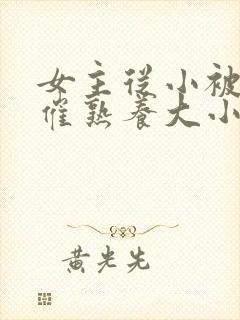 女主従小被
催熟养大小
黄光先